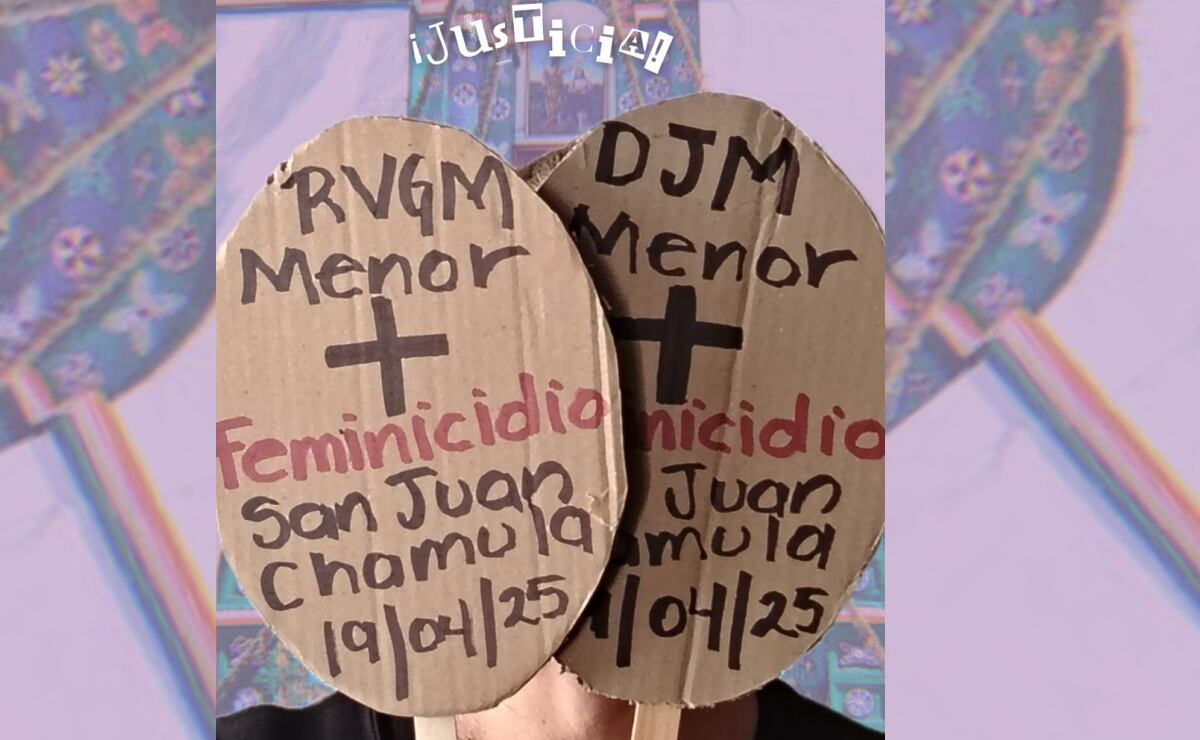 ¡JUSTICIA!
RVGM
Menor
Feminicidio
San Juan
Chamula
19/04/25
DJM
Menor
nicidio
Juan
amula
/04/25